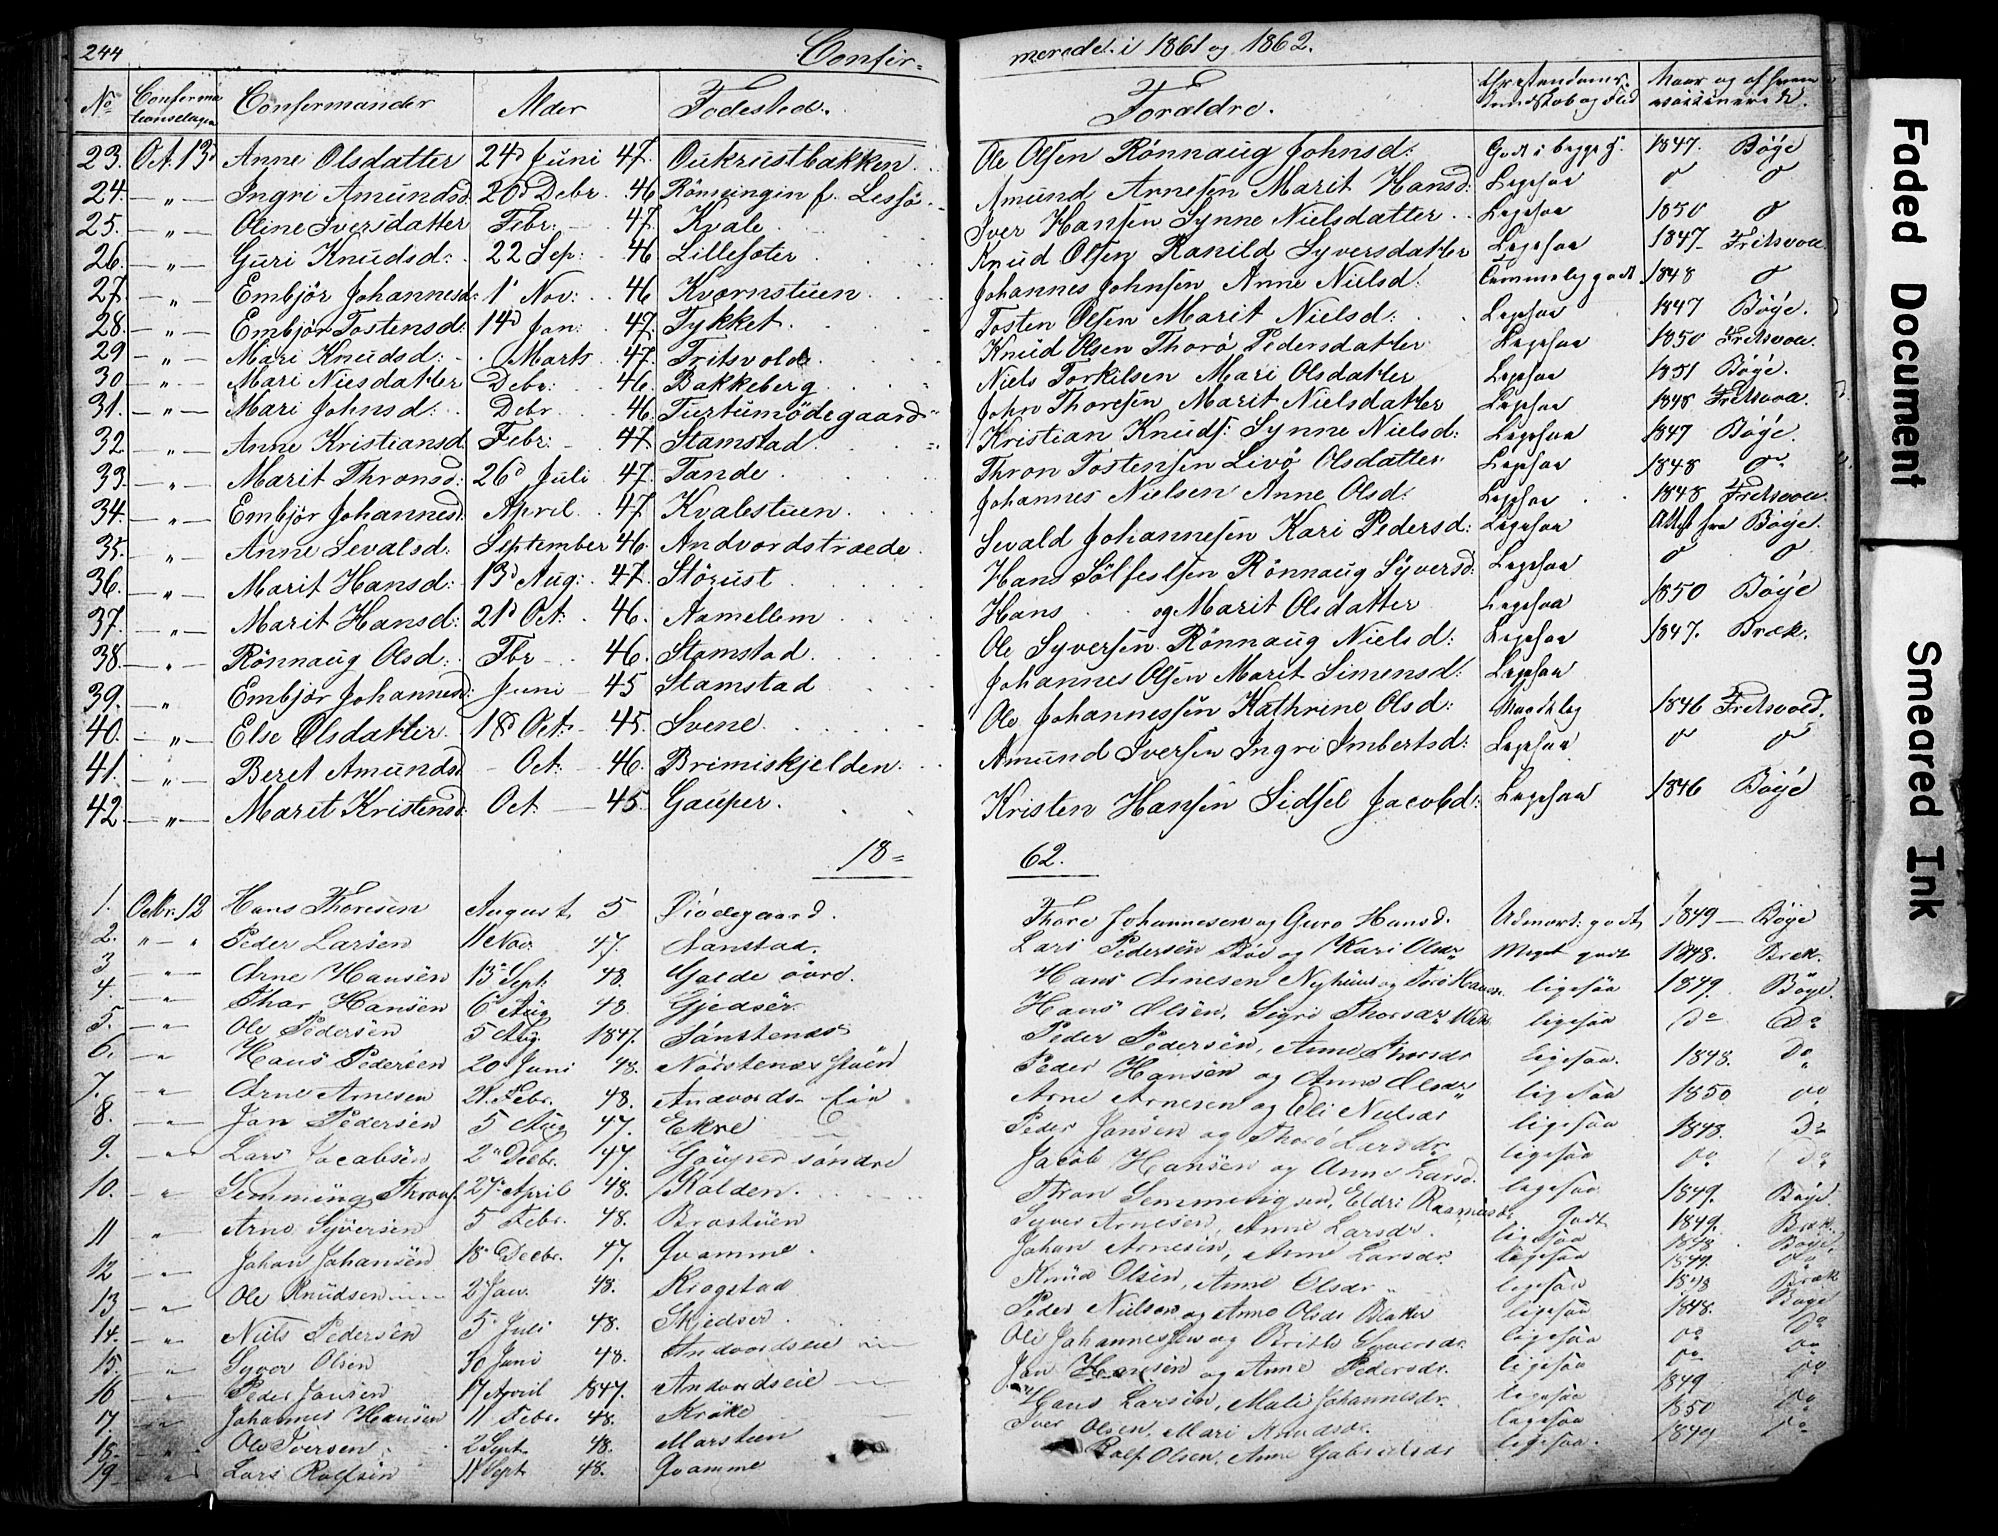 244 Confir= merede i 1861 og 1862.
No Conferma tionsdagen Confermander Alder Fodested. Foraldre. Christendoms Kundskab og Flid Naar og af hvem vaccinerede.
23. Oct. 13d Anne Olsdatter 24d Juni 47. Oukrustbakken Ole Olsen Rönnaug Johnsd: Godt i begge H. 1847. Böÿe
24. — „ — Ingri Amundsd 20d Debr. 46 Rönsengin f. Lesjö Amund Arnesen Marit Hansd: Ligesaa
25. — „ — Oline Iversdatter Febr: 47. Kvale Iver Hansen Synne Nielsdatter Ligesaa 1850
26. — „ — Guri Knudsd: 22 Sep: 46 Lillesæter Knud Olsen Ranild Syversdatter Ligesaa 1847 Fritsvold
27. — „ Embjör Johannesd: 1d Nov: 46 Kvernstuen Johannes Johnsen Anne Nielsd: Temmelig godt 1848
28. — „ — Embjör Tostensd: 14d Jan: 47. Tykket Tosten Olsen Marit Nielsd: Ligesaa 1847 Böÿe.
29 — „ — Mari Knudsd: Marts 47. Fritsvold Knud Olsen Thorö Pedersdatter Ligesaa 1850 Fritsvold
30 — „ — Mari Nielsdatter Debr: 46. Bakkeberg Niels Torkilsen Mari Olsdatter Ligesaa 1851 Böÿe.
31. — „ — Mari Johnsd: Debr 46. Turtumödegaard John Thoresen Marit Nielsdatter Ligesaa 1848 Fritsvold
32 — „ — Anne Kristiansd Febr: 47. Stamstad Kristian Knuds: Synne Nielsd: Ligesaa 1847 Böÿe.
33. — „ Marit Thronsd: 26d Juli 47. Tande Thron Tostensen Livö Olsdatter Ligesaa 1848
34. — „ — Embjör Johannesd: April 47 Kvalestuen Johannes Nielsen Anne Olsd: Ligesaa 1848 Fritsvold
35. — „ Anne Sevalsd: September 46. Andvordstræde Sevald Johannesen Kari Pedersd: Ligesaa Attest fra Böÿe.
36. — „ — Marit Hansd: 13d Aug: 47. Störust Hans Sölfestsen Rönnaug Syversd: Ligesaa
37. — „ — Marit Hansd: 21d Oct: 46. Aamellem Hans og Marit Olsdatter Ligesaa 1850 Böÿe
38. — „ Rönnaug Olsd: Fbr 46. Stamstad Ole Syversen Rönnaug Nielsd: Ligesaa 1847. Bræk.
39. — „ Embjör Johannesd: Juni 45 Stamstad Johannes Olsen Marit Simensd: Ligesaa
40. — „ — Else Olsdatter 18d Oct: 45. Svene Ole Johannessen Kathrine Olsd: Maadelig 1846 Fritsvold.
41. — „ — Beret Amundsd Oct: 46. Brimiskjelden Amund Iversen Ingri Imbertsd: Ligesaa
42. — „ — Maret Kristensd: Oct 45. Gauper. Kristen Hansen Sidsel Jacobsd: Ligesaa 1846 Böÿe
18= 62.
1. Octbr. 12 Hans Thoresen August 5 Öiödegaard. Thore Johannesen og Guro Hansd. Udmærk: godt 1849 Böÿe
2. „ — „ Peder Larsen 11 Nov. 47. Aanstad. Lars Pedersen Böe og Kari Olsdr Meget godt 1848. Bræk.
3 — „ — Arne Hansen 13 Sept 48. Galde övre. Hans Arnesen Nyhuus og Torö Hansdr. ligesaa 1849. Böÿe.
4. — „ Thor Hansen 6 Aug 48. Gjedsör. Hans Olsen, Sigri Thorsdr ligesaa do Do
5. — „ Ole Pedersen 5 Aug. 1847. Sönstenæs Peder Pedersen, Anne Thorsdr ligesaa. 1848. Do
6. „ Hans Pedersen 20 Juni 48. Norstenæs stuen Peder Hansen og Anne Olsdr ligesaa 1850 Do
7. — „ Arne Arnesen 21. Febr. 48. Andvords- eie Arne Arnesen og Eli Nielsdr ligesaa 1848. Do
8. — „ Jan Pedersen 5 Aug 47. Ekre Peder Jansen og Thorö Larsdr ligesaa do Do
9. — „ Lars Jacobsen 2 Decbr. 47. Gauper söndre Jacob Hansen og Anne Larsd. ligesaa 1849. Böÿe
10. — „ Semming Thronds. 27 April 48. Kolden. Thron Semming, Eldri Rasmusdr Godt 1849. Bræk
11 — „ Arne Syversen 5 Febr. 48. Brostuen Syver Arnesen, Anne Larsdr. ligesaa 1848 Böÿe.
12 — „ Johan Johansen 18 Decbr. 47. Qvamme. Johan Arnesen, Anne Larsdr. ligesaa 1849. do
13 — „ Ole Knudsen 2 Jan. 48. Krogstad Knud Olsen, Anne Olsdr ligesaa 1848 Bræk
14. — „ Niels Pedersen 5 Juli 48. Skjedser Peder Nielsen og Anne Olsdr Bakke ligesaa 1848. Böÿe
15. „ Syver Olsen 30 Juni 48. Andvordseie Ole Johannessen og Berithe Syversdr. ligesaa do Do
16 „ Peder Jansen 17 April 1847. Andvordseie Jan Hansen og Anne Pedersdr. ligesaa do do
17. „ Johannes Hansen 11 Febr. 48. Kröke Hans Larsen, Mali Johannesdr. ligesaa 1849 do
18. „ Ole Iversen 2 Sept. 48. Marstuen Iver Olsen, Mari Knudsdr. ligesaa 1850 do
19 „ Lars Rolfsen 11 Sept 48. Qvamme Rolf Olsen, Anne Gabrielsdr ligesaa. 1849 do
Faded Document
Smeared Ink